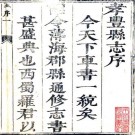 孝豐縣志序
今天下車書一統矣
今薄海郡縣通修志書
甚盛典也西蜀羅君以